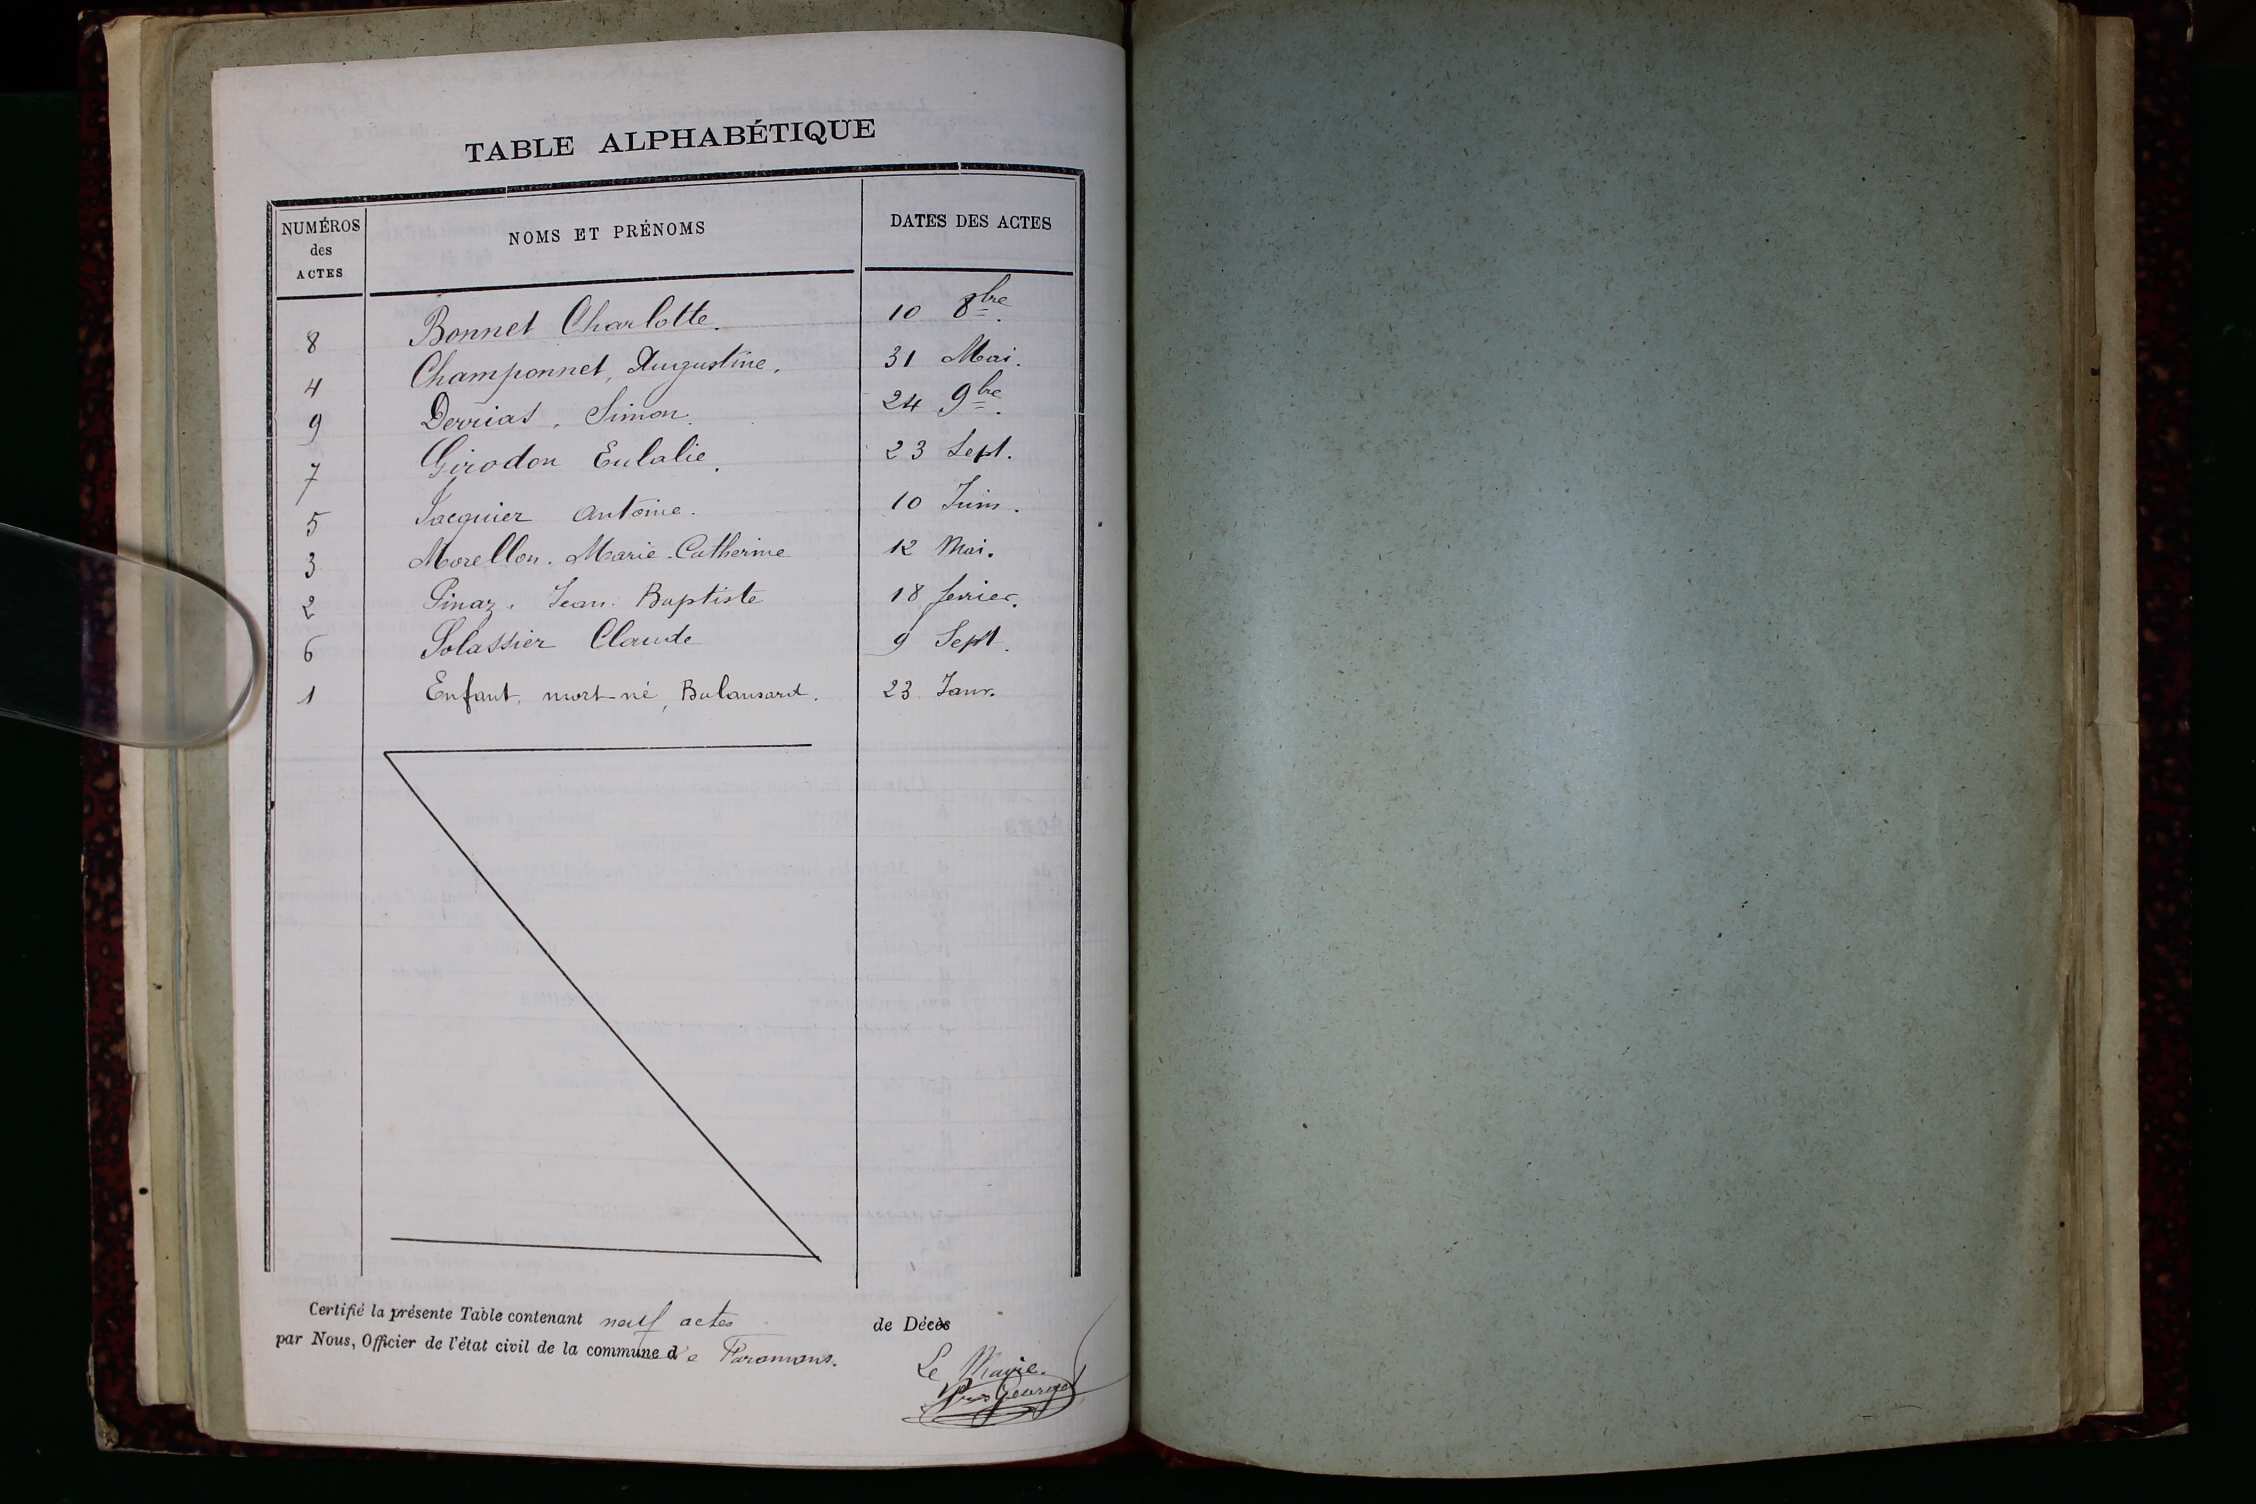 TABLE ALPHABÉTIQUE
NUMÉROS des ACTES NOMS ET PRÉNOMS DATES DES ACTES
8 Bonnet Charlotte. 10 8bre.
4 Champonnet, Augustine. 31 Mai.
9 Derrias, Simon. 24 9bre.
7 Girodon Eulalie. 23 Sept.
5 Jacquier Antoine. 10 Juin.
3 Morellon. Marie-Catherine 12 Mai.
2 Pinaz. Jean-Baptiste 18 fevrier.
6 Solassier Claude 9 Sept.
1 Enfant, mort-né, Balansard. 23 Janv.
Certifié la présente Table contenant neuf actes de Décès
par Nous, Officier de l'état civil de la commune de Faramans.
Le Maire.